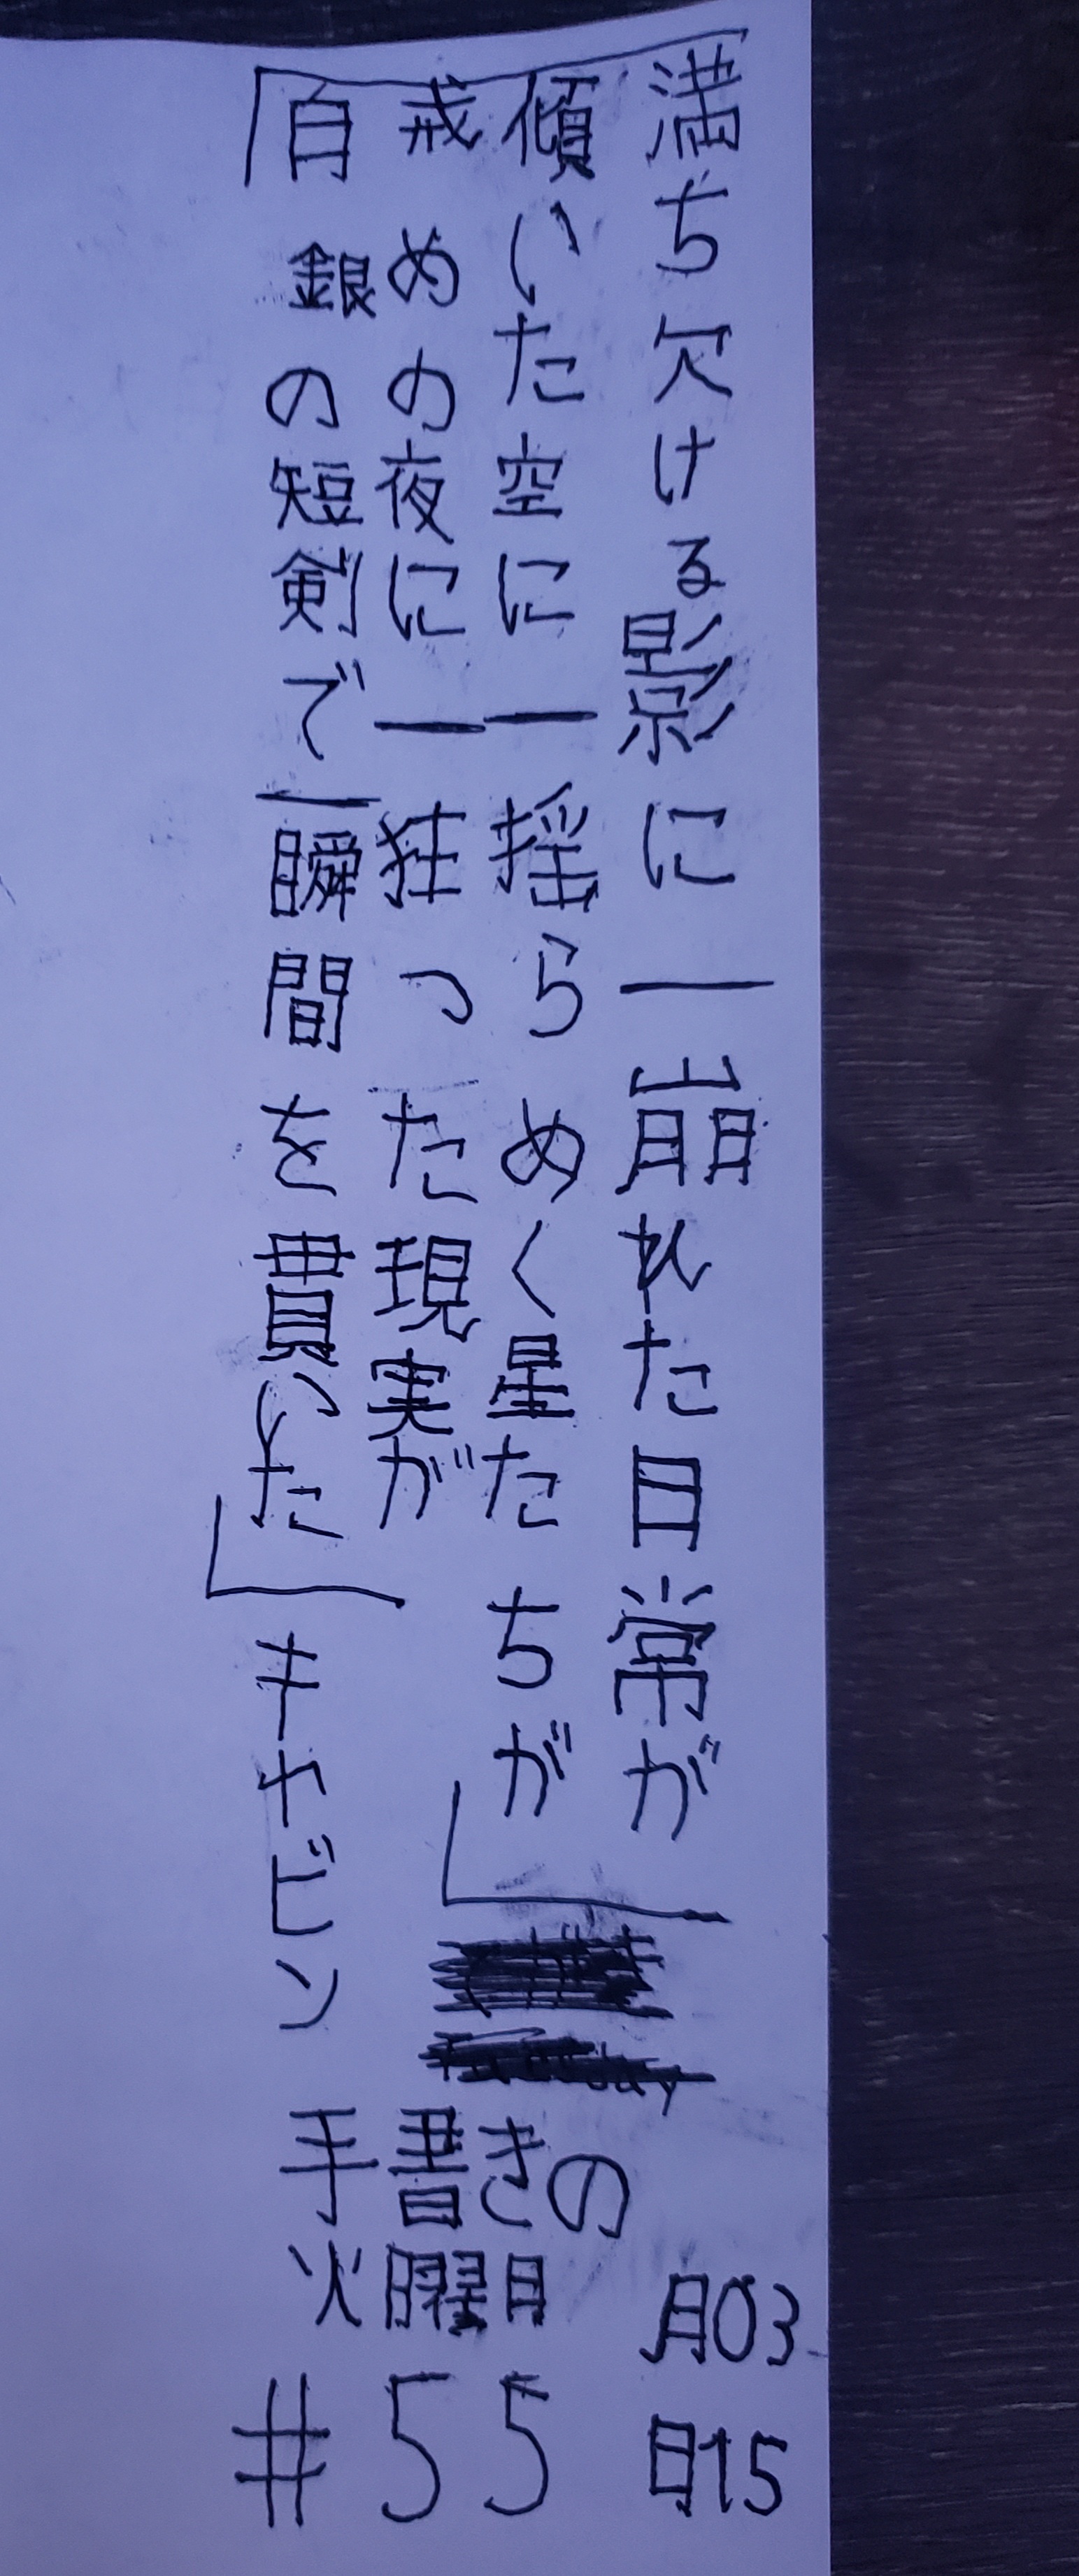 満ち欠ける影に―崩れた日常が
傾いた空に―揺らめく星たちが」
戒めの夜に―狂った現実が
「白銀の短剣で―瞬間を貫いた」キャビン
手書きの
火曜日
#55
月03
日15